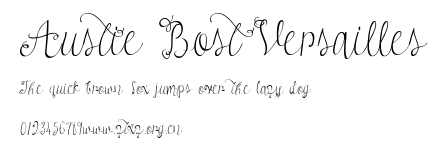 Austie Bost Versailles
The quick brown fox jumps over the lazy dog
0123456789www.zhzq.org.cn